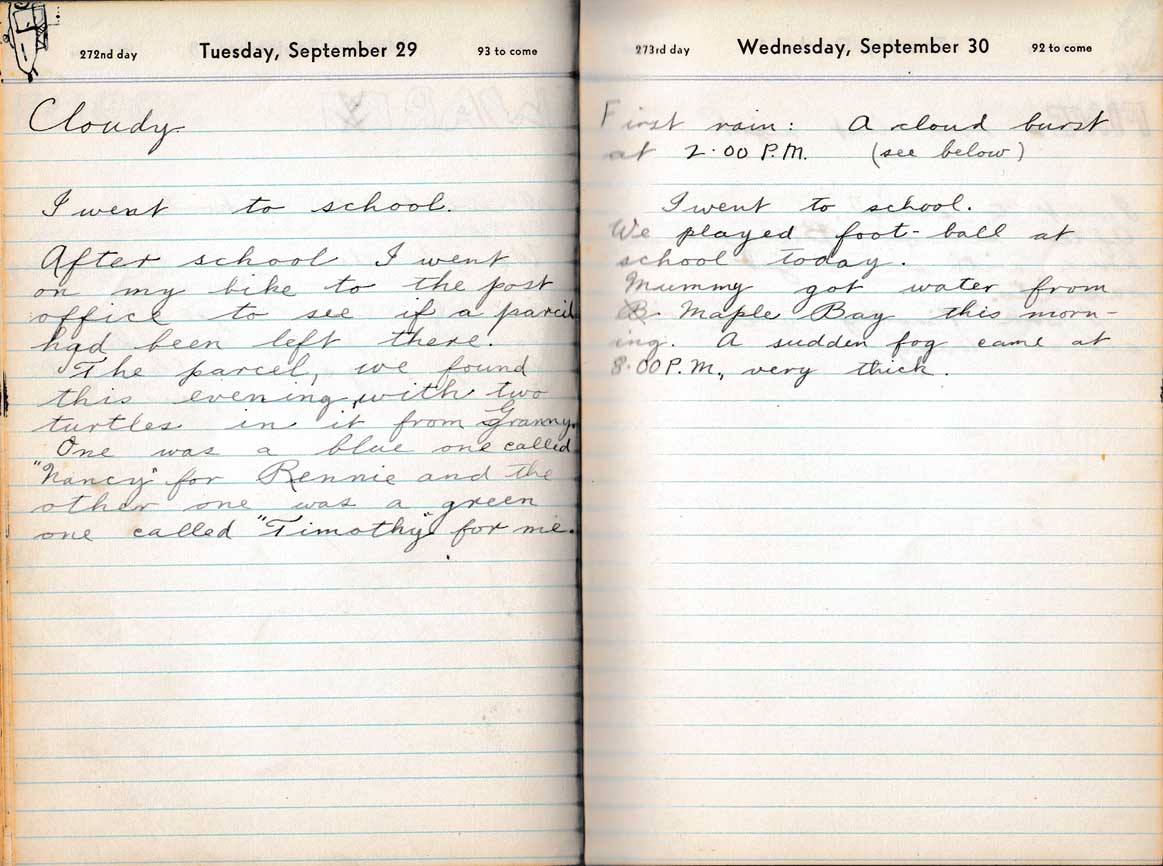 272nd day Tuesday, September 29 93 to come
Cloudy
I went to school.
After school I went
on my bike to the post
office to see if a parcil
had been left there.
The parcel, we found
this evening, with two
turtles in it from Granny.
One was a blue one called
"Nancy" for Rennie and the
other one was a green
one called "Timothy" for me.
273rd day Wednesday, September 30 92 to come
First rain: A cloud burst
at 2.00 P.M. (see below)
I went to school.
We played foot-ball at
school today.
Mummy got water from
B Maple Bay this morn-
ing. A sudden fog came at
8.00 P.M., very thick.